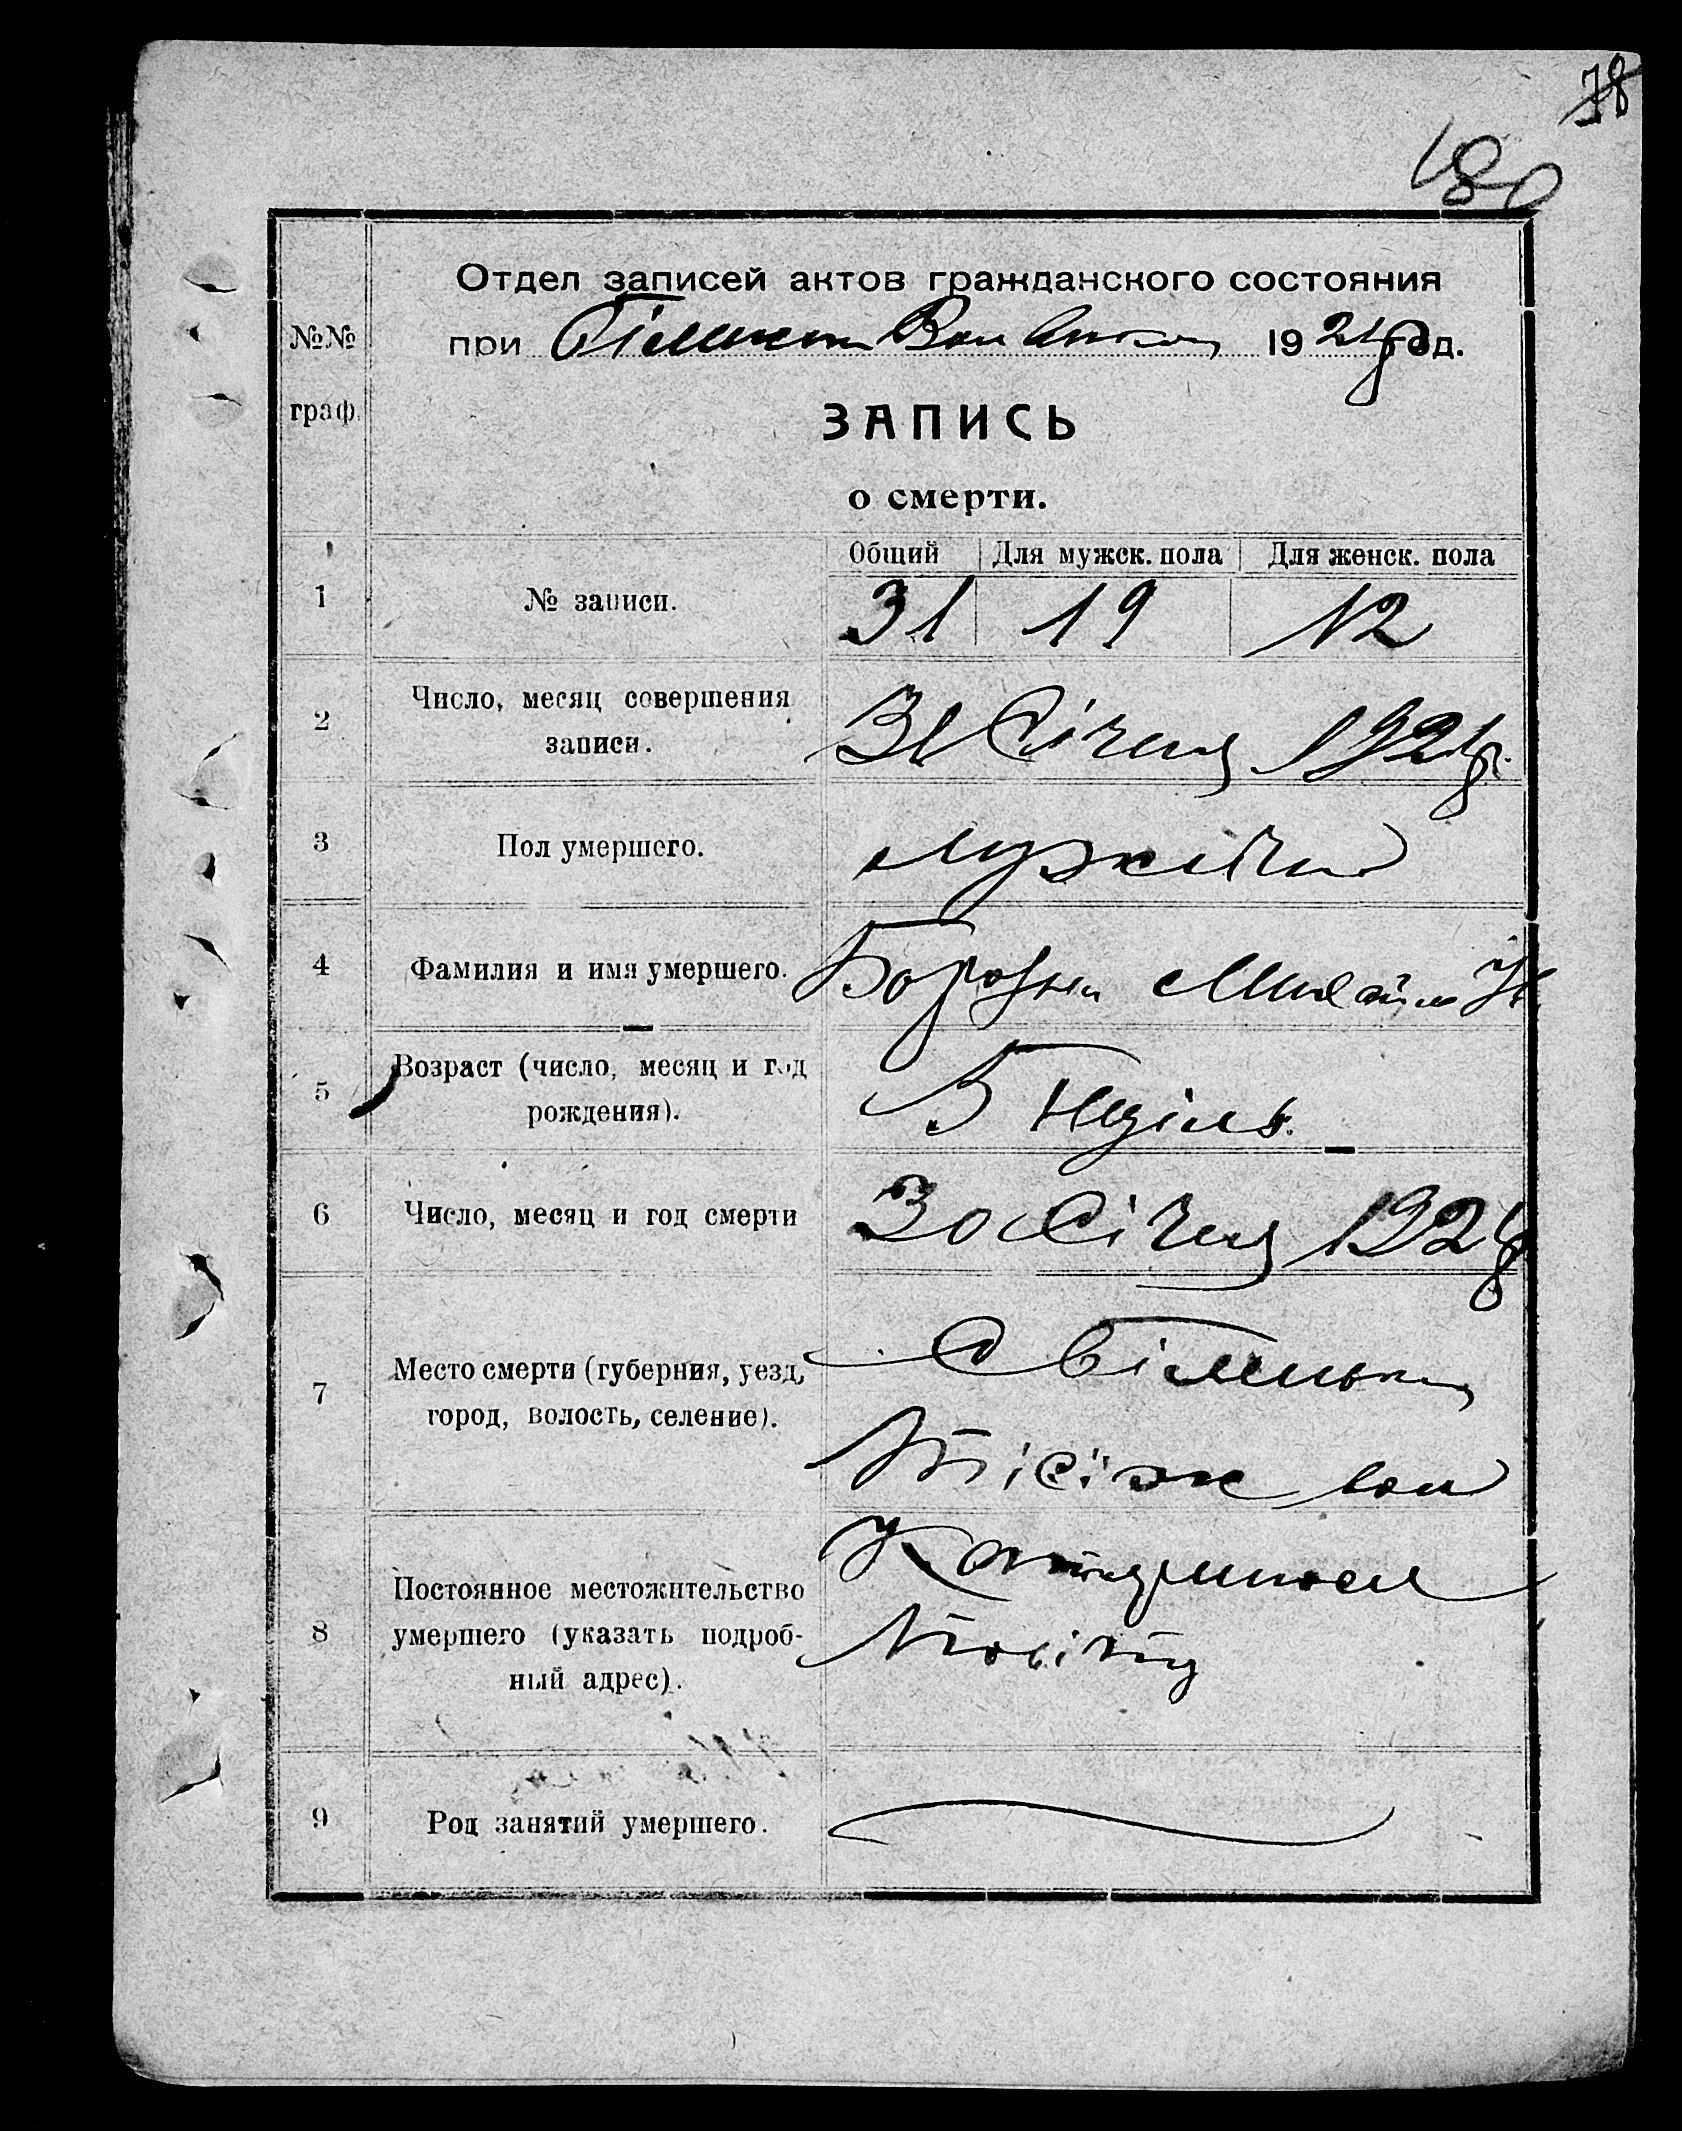 78
180
Отдел записей актов гражданского состояния
№№
при 192 год.
граф.
ЗАПИСЬ
о смерти.
Общий Для мужск. пола Для женск. пола
1 № записи. 31 19 12
2 Число, месяц совершения
записи. 31 Січня 192
3 Пол умершего.
4 Фамилия и имя умершего. Михайло
5 Возраст (число, месяц и год
рождения). 5 неділь
6 Число, месяц и год смерти 30 Січня 192
7 Место смерти (губерния, уезд,
город, волость, селение).
Тієїж вол
8 Постоянное местожительство
умершего (указать подроб-
ный адрес).
9 Род занятий умершего.